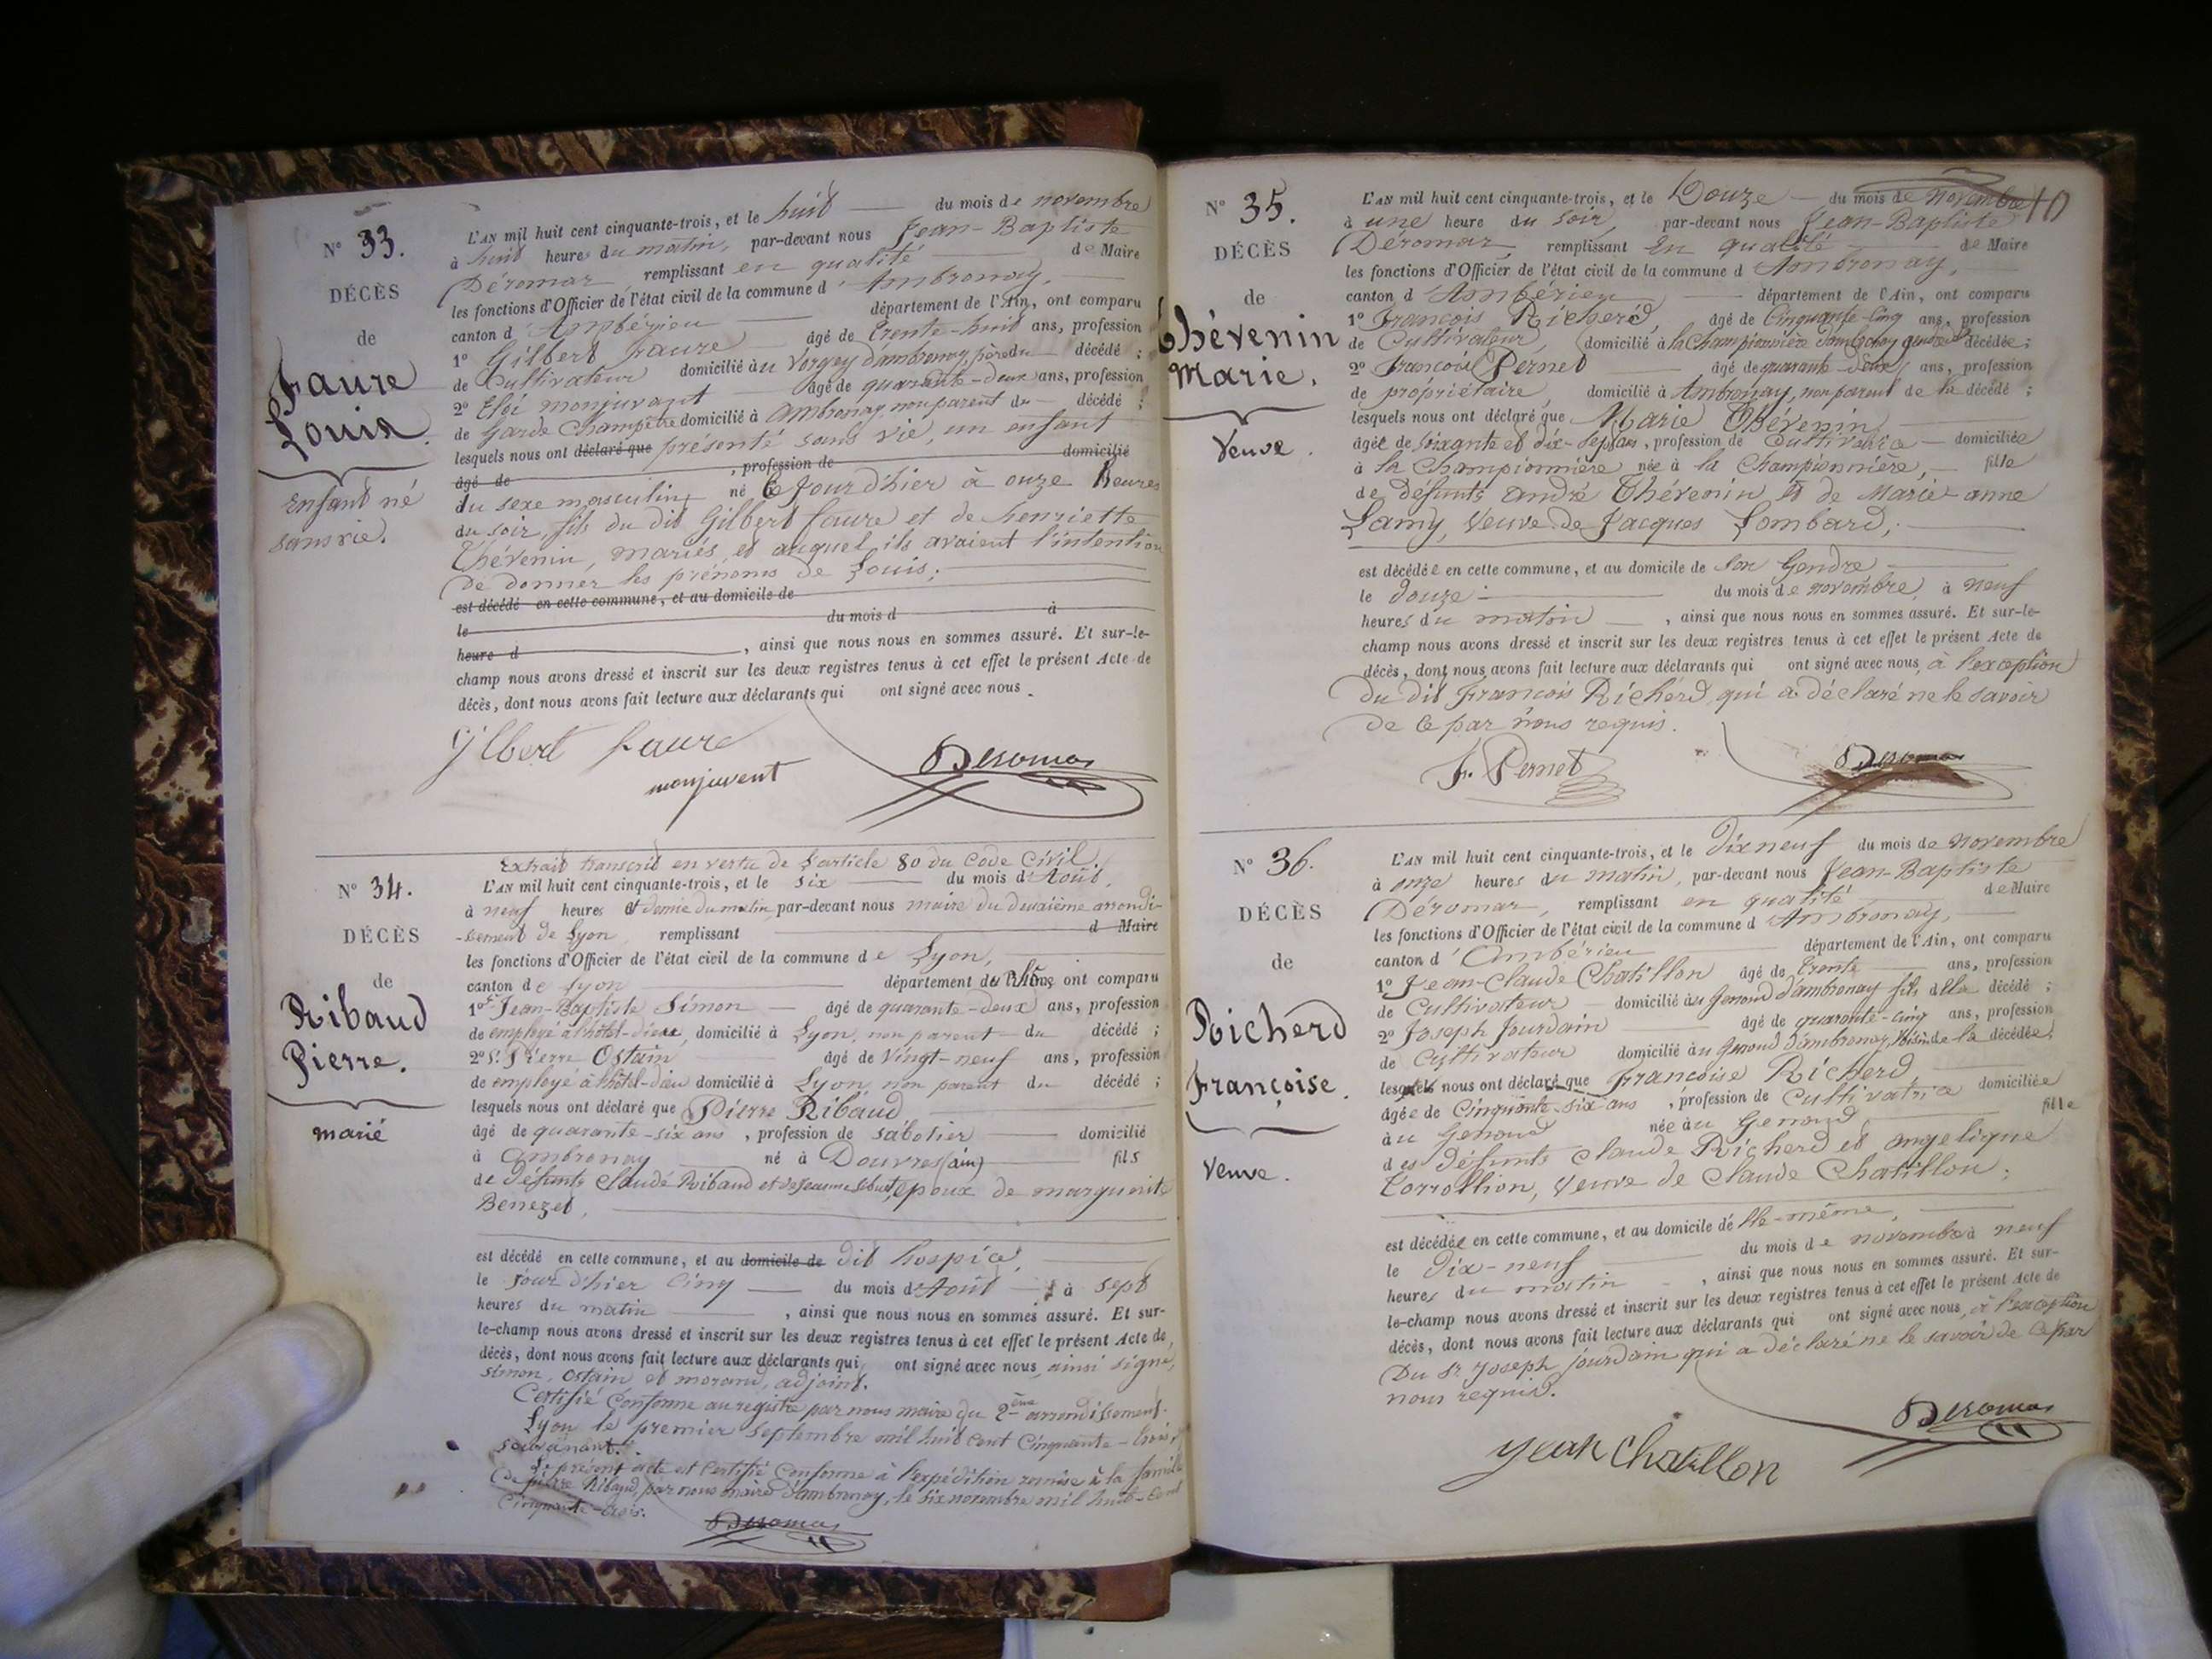 N° 33.
DÉCÈS
de
Faure
Louis.
Enfant né
sans vie.
L'AN mil huit cent cinquante-trois, et le huit du mois de novembre
à huit heures du matin, par-devant nous Jean-Baptiste
Déromas remplissant en qualité de Maire
les fonctions d'Officier de l'état civil de la commune d'Ambronay,
canton d'Ambérieu département de l'Ain, ont comparu
1° Gilbert Faure âgé de trente-huit ans, profession
de Cultivateur domicilié au Vorgey d'ambronay, père du décédé ;
2° Eloi monjuvant âgé de quarante-deux ans, profession
de Garde Champêtre domicilié à Ambronay, non parent du décédé ;
lesquels nous ont déclaré que présenté sans vie, un enfant
âgé de , profession de domicilié
du sexe masculin, né le jour d'hier à onze heures
du soir, fils du dit Gilbert faure et de henriette
Thévenin, mariés, et auquel ils avaient l'intention
de donner les prénoms de Louis ;
est décédé en cette commune, et au domicile de
le du mois d à
heure d , ainsi que nous nous en sommes assuré. Et sur-le-
champ nous avons dressé et inscrit sur les deux registres tenus à cet effet le présent Acte de
décès, dont nous avons fait lecture aux déclarants qui ont signé avec nous.
Gilbert faure
monjuvent
Deromas
N° 34.
DÉCÈS
de
Ribaud
Pierre.
marié
Extrait transcrit en vertu de l'article 80 du Code Civil.
L'AN mil huit cent cinquante-trois, et le six du mois d'Août,
à neuf heures et demie du matin, par-devant nous maire du deuxième arrondi-
-sement de Lyon remplissant d Maire
les fonctions d'Officier de l'état civil de la commune de Lyon,
canton de Lyon département du Rhône ont comparu
1° Sr Jean-Baptiste Simon âgé de quarante-deux ans, profession
de employé à l'hôtel-dieu, domicilié à Lyon, non parent du décédé ;
2° Sr Pierre Ostain âgé de Vingt-neuf ans, profession
de employé à l'hôtel-dieu domicilié à Lyon non parent du décédé ;
lesquels nous ont déclaré que Pierre Ribaud
âgé de quarante-six ans, profession de sabotier domicilié
à Ambronay né à Douvres (ain) fils
de défunts Claude Ribaud et de Jeanne époux de marguerite
Benezet,
est décédé en cette commune, et au domicile de dit hospice,
le jour d'hier Cinq du mois d'Août à sept
heures du matin , ainsi que nous nous en sommes assuré. Et sur-
le-champ nous avons dressé et inscrit sur les deux registres tenus à cet effet le présent Acte de
décès, dont nous avons fait lecture aux déclarants qui ont signé avec nous, ainsi signé,
Simon, Ostain et morand, adjoint.
Certifié Conforme au registre par nous maire du 2ème arrondissement.
Lyon le premier Septembre mil huit cent Cinquante-trois,
Le présent acte est Certifié Conforme à l'expédition remise à la famille
de pierre Ribaud, par nous maire d'ambronay, le six novembre mil huit-cent
Cinquante-trois.
Deromas
10
N° 35.
DÉCÈS
de
Thévenin
Marie.
Veuve.
L'AN mil huit cent cinquante-trois, et le Douze du mois de Novembre
à une heure du soir, par-devant nous Jean-Baptiste
Déromas remplissant en qualité de Maire
les fonctions d'Officier de l'état civil de la commune d'Ambronay,
canton d'Ambérieu département de l'Ain, ont comparu
1° François Richerd, âgé de Cinquante-Cinq ans, profession
de Cultivateur, domicilié à la Championnière d'ambronay gendre de décédée ;
2° François Pernet âgé de quarante-deux ans, profession
de propriétaire, domicilié à Ambronay, non parent de la décédé ;
lesquels nous ont déclaré que Marie Thévenin
âgée de soixante et dix-sept ans, profession de Cultivatrice domiciliée
à la Championnière née à la Championnière, fille
de défunts André Thévenin et de Marie-anne
Lamy, Veuve de Jacques Lombard ;
est décédée en cette commune, et au domicile de son Gendre
le douze du mois de novembre, à neuf
heures du matin , ainsi que nous nous en sommes assuré. Et sur-le-
champ nous avons dressé et inscrit sur les deux registres tenus à cet effet le présent Acte de
décès, dont nous avons fait lecture aux déclarants qui ont signé avec nous, à l'exception
du dit François Richerd, qui a déclaré ne le savoir
de ce par nous requis.
F. Pernet
Deromas
N° 36.
DÉCÈS
de
Richerd
Françoise.
Veuve.
L'AN mil huit cent cinquante-trois, et le Dix neuf du mois de Novembre
à onze heures du matin, par-devant nous Jean-Baptiste
Déromas, remplissant en qualité de Maire
les fonctions d'Officier de l'état civil de la commune d'Ambronay,
canton d'Ambérieu département de l'Ain, ont comparu
1° Jean-Claude Chatillon âgé de trente ans, profession
de Cultivateur domicilié au Genoud d'ambronay fils de la décédé ;
2° Joseph Jourdain âgé de quarante-cinq ans, profession
de Cultivateur domicilié au Genoud d'ambronay, voisin de la décédée ;
lesquels nous ont déclaré que Françoise Richerd,
âgée de Cinquante-six ans, profession de Cultivatrice domiciliée
au Genoud née au Genoud fille
des défunts Claude Richerd et angelique
Corrollion, Veuve de Claude Chatillon ;
est décédée en cette commune, et au domicile de Elle-même,
le Dix-neuf du mois de novembre à neuf
heures du matin , ainsi que nous nous en sommes assuré. Et sur-
le-champ nous avons dressé et inscrit sur les deux registres tenus à cet effet le présent Acte de
décès, dont nous avons fait lecture aux déclarants qui ont signé avec nous, à l'exception
Du Sr Joseph jourdain qui a déclaré ne le savoir de ce par
nous requis.
Deromas
Jean Chatillon